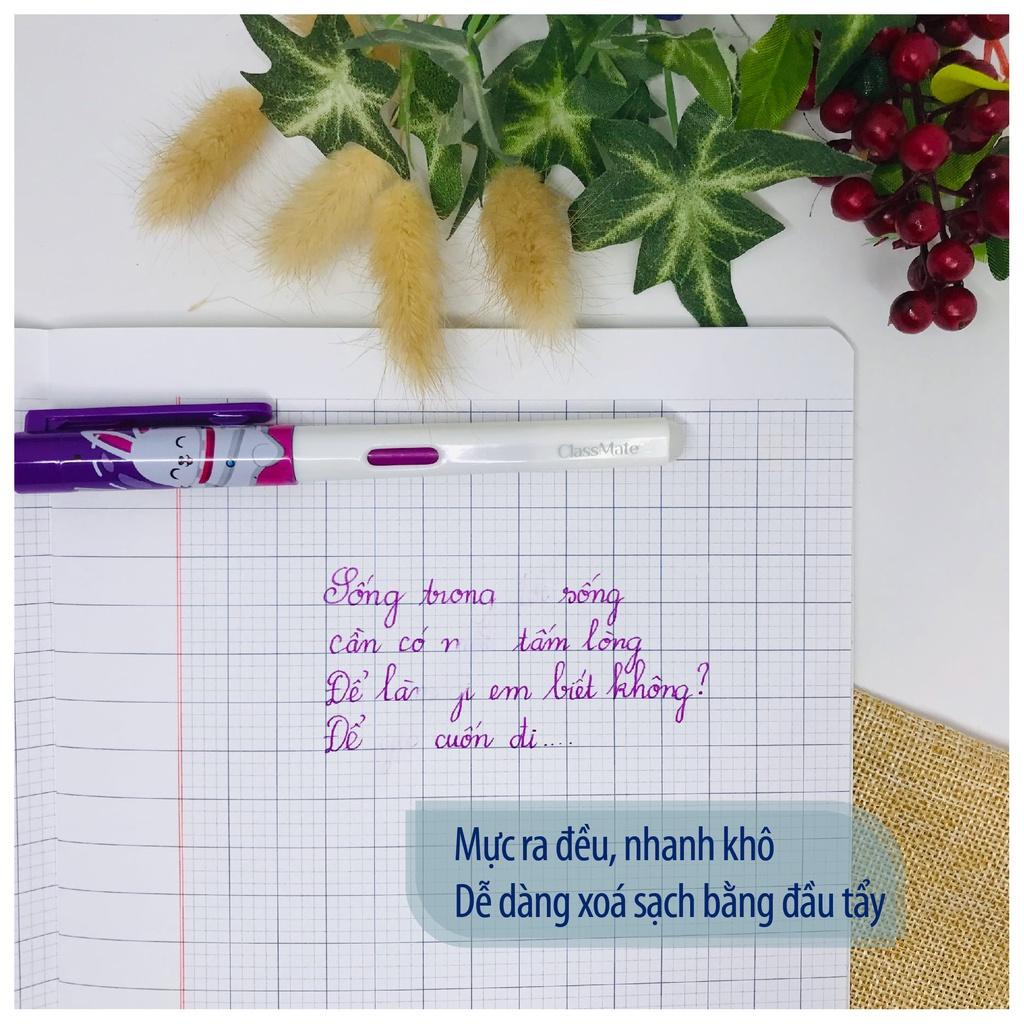 ClassMate
Sống trong sống
cần có tấm lòng
Để là gì em biết không?
Để cuốn đi....
Mực ra đều, nhanh khô
Dễ dàng xoá sạch bằng đầu tẩy